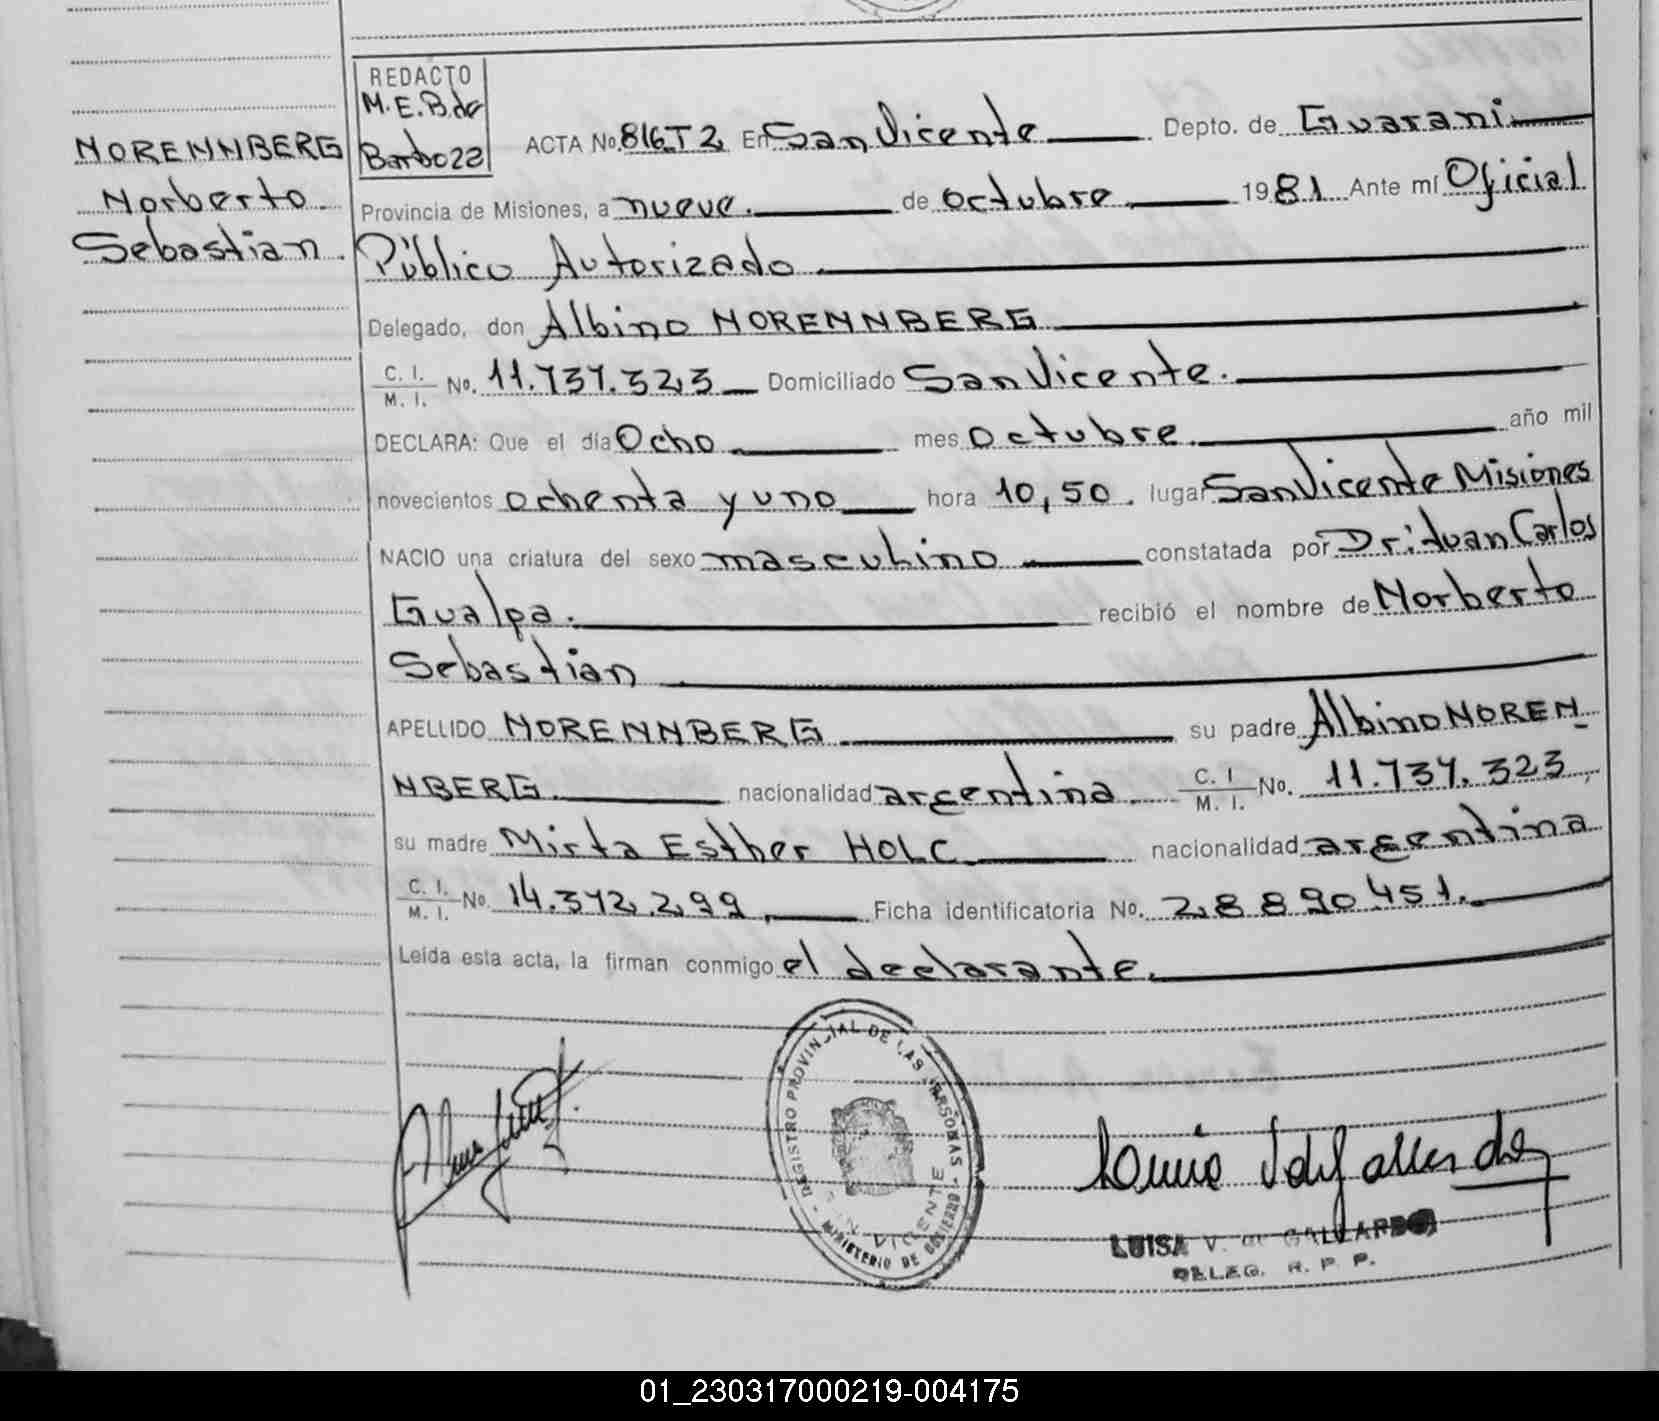 NORENNBERG
Norberto.
Sebastian.
REDACTO
M.E.B.de
Barboza
ACTA No. 816 T 2 En San Vicente Depto. de Guarani
Provincia de Misiones, a nueve. de octubre. 1981 Ante mí Oficial
Público Autorizado.
Delegado, don Albino NORENNBERG
C. I. / M. I. No. 11.737.323 Domiciliado San Vicente.
DECLARA: Que el día Ocho mes Octubre. año mil
novecientos ochenta y uno hora 10,50. lugar San Vicente Misiones
NACIO una criatura del sexo masculino constatada por Dr. Juan Carlos
Gualpa. recibió el nombre de Norberto
Sebastian
APELLIDO NORENNBERG su padre Albino NOREN-
NBERG. nacionalidad argentina. C. I. / M. I. No. 11.737.323,
su madre Mirta Esther HOLC. nacionalidad argentina
C. I. / M. I. No. 14.372.299. Ficha identificatoria No. 28890451.
Leída esta acta, la firman conmigo el declarante.
REGISTRO PROVINCIAL DE LAS PERSONAS - MINISTERIO DE GOBIERNO -
SAN VICENTE
LUISA V. de GALLARDO
DELEG. R. P. P.
01_230317000219-004175